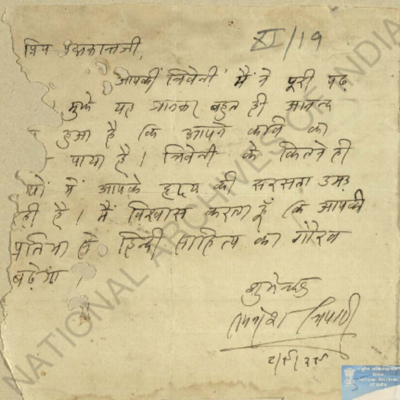 XI/19
प्रिय
आपकी त्रिवेणी मैं ने पूरी पढ़
मुझे यह जानकर बहुत ही आनन्द
हुआ है कि आपने कवि का
पाया है। त्रिवेणी के कितने ही
में आपके हृदय की सरसता उमड़
रही है। मैं विश्वास करता हूँ कि आपकी
प्रतिभा से हिन्दी साहित्य का गौरव
बढ़ेगा।
शुभेच्छु
त्रिपाठी
NATIONAL ARCHIVES OF INDIA